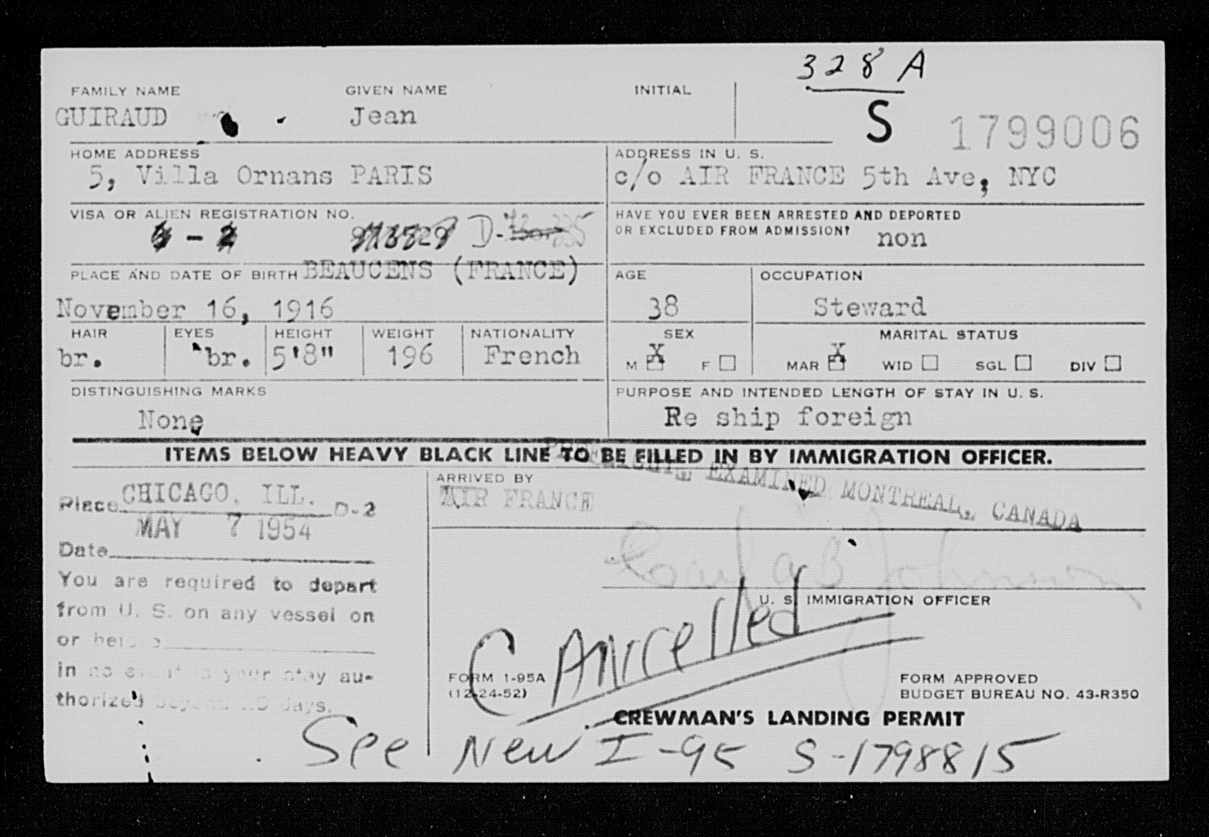 328 A
FAMILY NAME GIVEN NAME INITIAL
GUIRAUD Jean
S 1799006
HOME ADDRESS
5, Villa Ornans PARIS
ADDRESS IN U. S.
c/o AIR FRANCE 5th Ave, NYC
VISA OR ALIEN REGISTRATION NO.
D-
HAVE YOU EVER BEEN ARRESTED AND DEPORTED
OR EXCLUDED FROM ADMISSION?
non
PLACE AND DATE OF BIRTH BEAUCENS (FRANCE)
November 16, 1916
AGE
38
OCCUPATION
Steward
HAIR EYES HEIGHT WEIGHT NATIONALITY
br. br. 5'8" 196 French
SEX
M X F
MARITAL STATUS
MAR X WID SGL DIV
DISTINGUISHING MARKS
None
PURPOSE AND INTENDED LENGTH OF STAY IN U. S.
Re ship foreign
ITEMS BELOW HEAVY BLACK LINE TO BE FILLED IN BY IMMIGRATION OFFICER.
EXAMINED MONTREAL, CANADA
Place CHICAGO, ILL. D-2
MAY 7 1954
Date
You are required to depart
from U. S. on any vessel on
or before
in no event is your stay au-
thorized beyond days.
ARRIVED BY
AIR FRANCE
Johnson
U. S. IMMIGRATION OFFICER
Cancelled
FORM I-95A
(12-24-52)
FORM APPROVED
BUDGET BUREAU NO. 43-R350
CREWMAN'S LANDING PERMIT
See New I-95 S-1798815